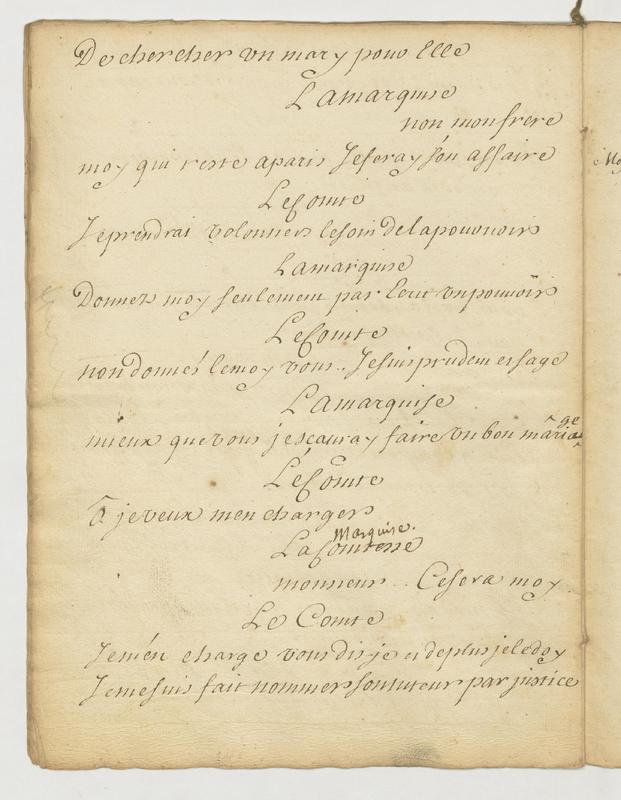 De chercher un mary pour Elle
Lamarquise
non mon frere
moy qui reste aparis Jeferay son affaire
LeComte
Jeprendrai volonniers lesoin delapouruoir
Lamarquise
Donnez moy seulement par Ecrit vnpouvoir
LeComte
non donnés lemoy vous.. Jesuisprudent etsage
Lamarquise
mieux quevous jescauray faire vn bon mariage
LeComte
je veux men charger
LaComtesse Marquise.
monsieur .. Cesera moy
Le Comte
Jemén charge vous dis je et deplus jeledoy
Jemesuis fait nommer sontuteur par justice